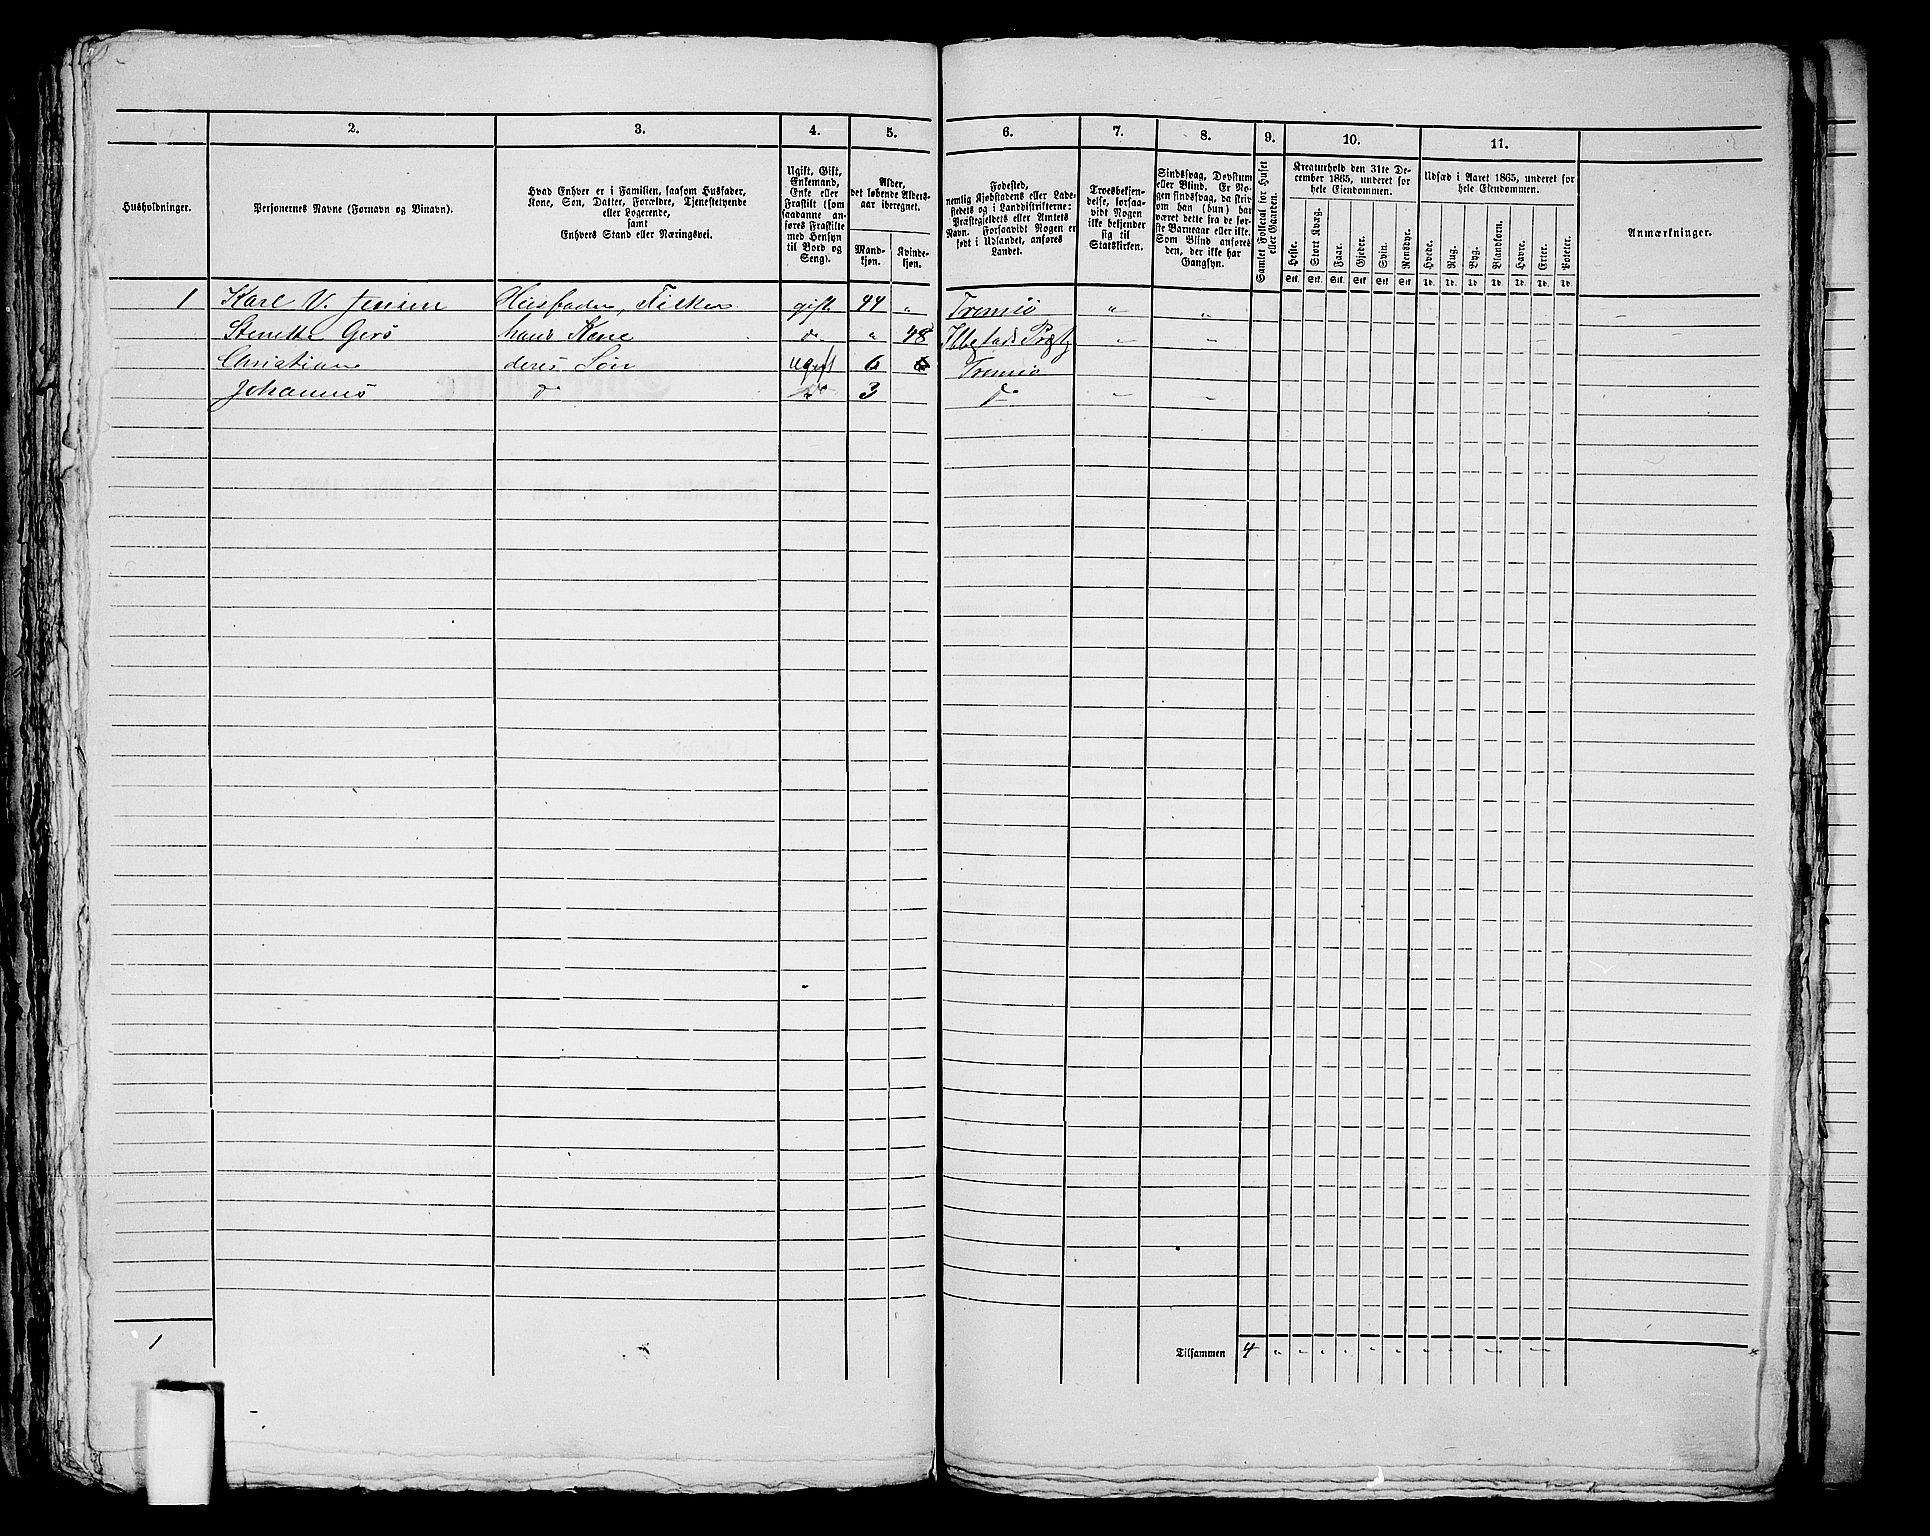 2. 3. 4. 5. 6. 7. 8. 9. 10. 11.
Husholdninger.
Personernes Navne (Fornavn og Tilnavn).
Hvad Enhver er i Familien, saasom Husfader,
Kone, Søn, Datter, Forældre, Tjenestetyende
eller Logerende,
samt
Enhvers Stand eller Næringsvei.
Ugift, Gift,
Enkemand,
Enke eller
Fraskilt (som
saadanne an-
føres Fraskilte
med Hensyn
til Bord og
Seng).
Alder,
det løbende Alders-
aar iberegnet.
Mand-
kjøn.
Kvinde-
kjøn.
Fødested,
nemlig Kjøbstadens eller Lade-
stedets og i Landdistrikterne:
Præstegjeldets eller Amtets
Navn. Forsaavidt Nogen er
født i Udlandet, anføres
Landet.
Troesbekjen-
delse, forsaa-
vidt Nogen
ikke bekjender
sig til
Statskirken.
Sindssvag, Døvstum
eller Blind. Er No-
gen sindssvag, da skriv
om han (hun) har
været dette fra de før-
ste Barneaar eller ikke.
Som Blind anføres
den, der ikke har
Gangsyn.
Samlet Folketal for Huset
eller Gaarden.
Kreaturhold den 31te De-
cember 1865, underet for
hele Eiendommen.
Heste. Stort Kvæg. Faar. Gjeder. Svin. Rensdyr.
Stk. Stk. Stk. Stk. Stk. Stk.
Udsæd i Aaret 1865, underet for
hele Eiendommen.
Hvede. Rug. Byg. Blandkorn. Havre. Erter. Poteter.
Td. Td. Td. Td. Td. Td. Td.
Anmærkninger.
1 Karl V. Jensen Husfader, gift 44 " Tromsö " "
Stenette Gers hans Kone do " 48 Ibbestads " "
Christian deres Søn ugift 6 Tromsö
Johannes do do 3 do " "
1 Tilsammen 4 " " " " " " " " " "